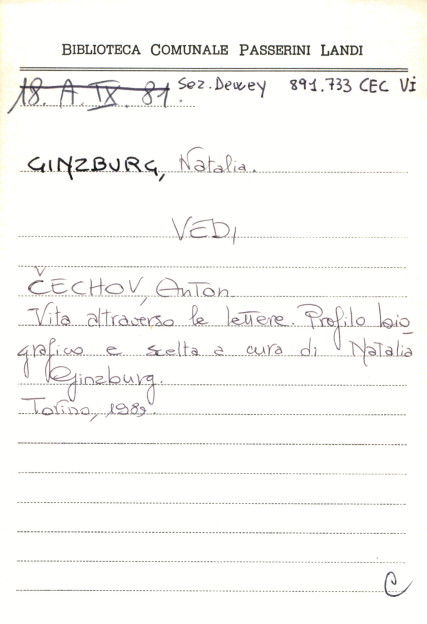 BIBLIOTECA COMUNALE PASSERINI LANDI
18. A. IX. 81. Sez. Dewey 891.733 CEC Vi
GINZBURG, Natalia.
VEDI
ČECHOV, Anton
Vita attraverso le lettere. Profilo bio
grafico e scelta a cura di Natalia
Ginzburg.
Torino, 1989.
C